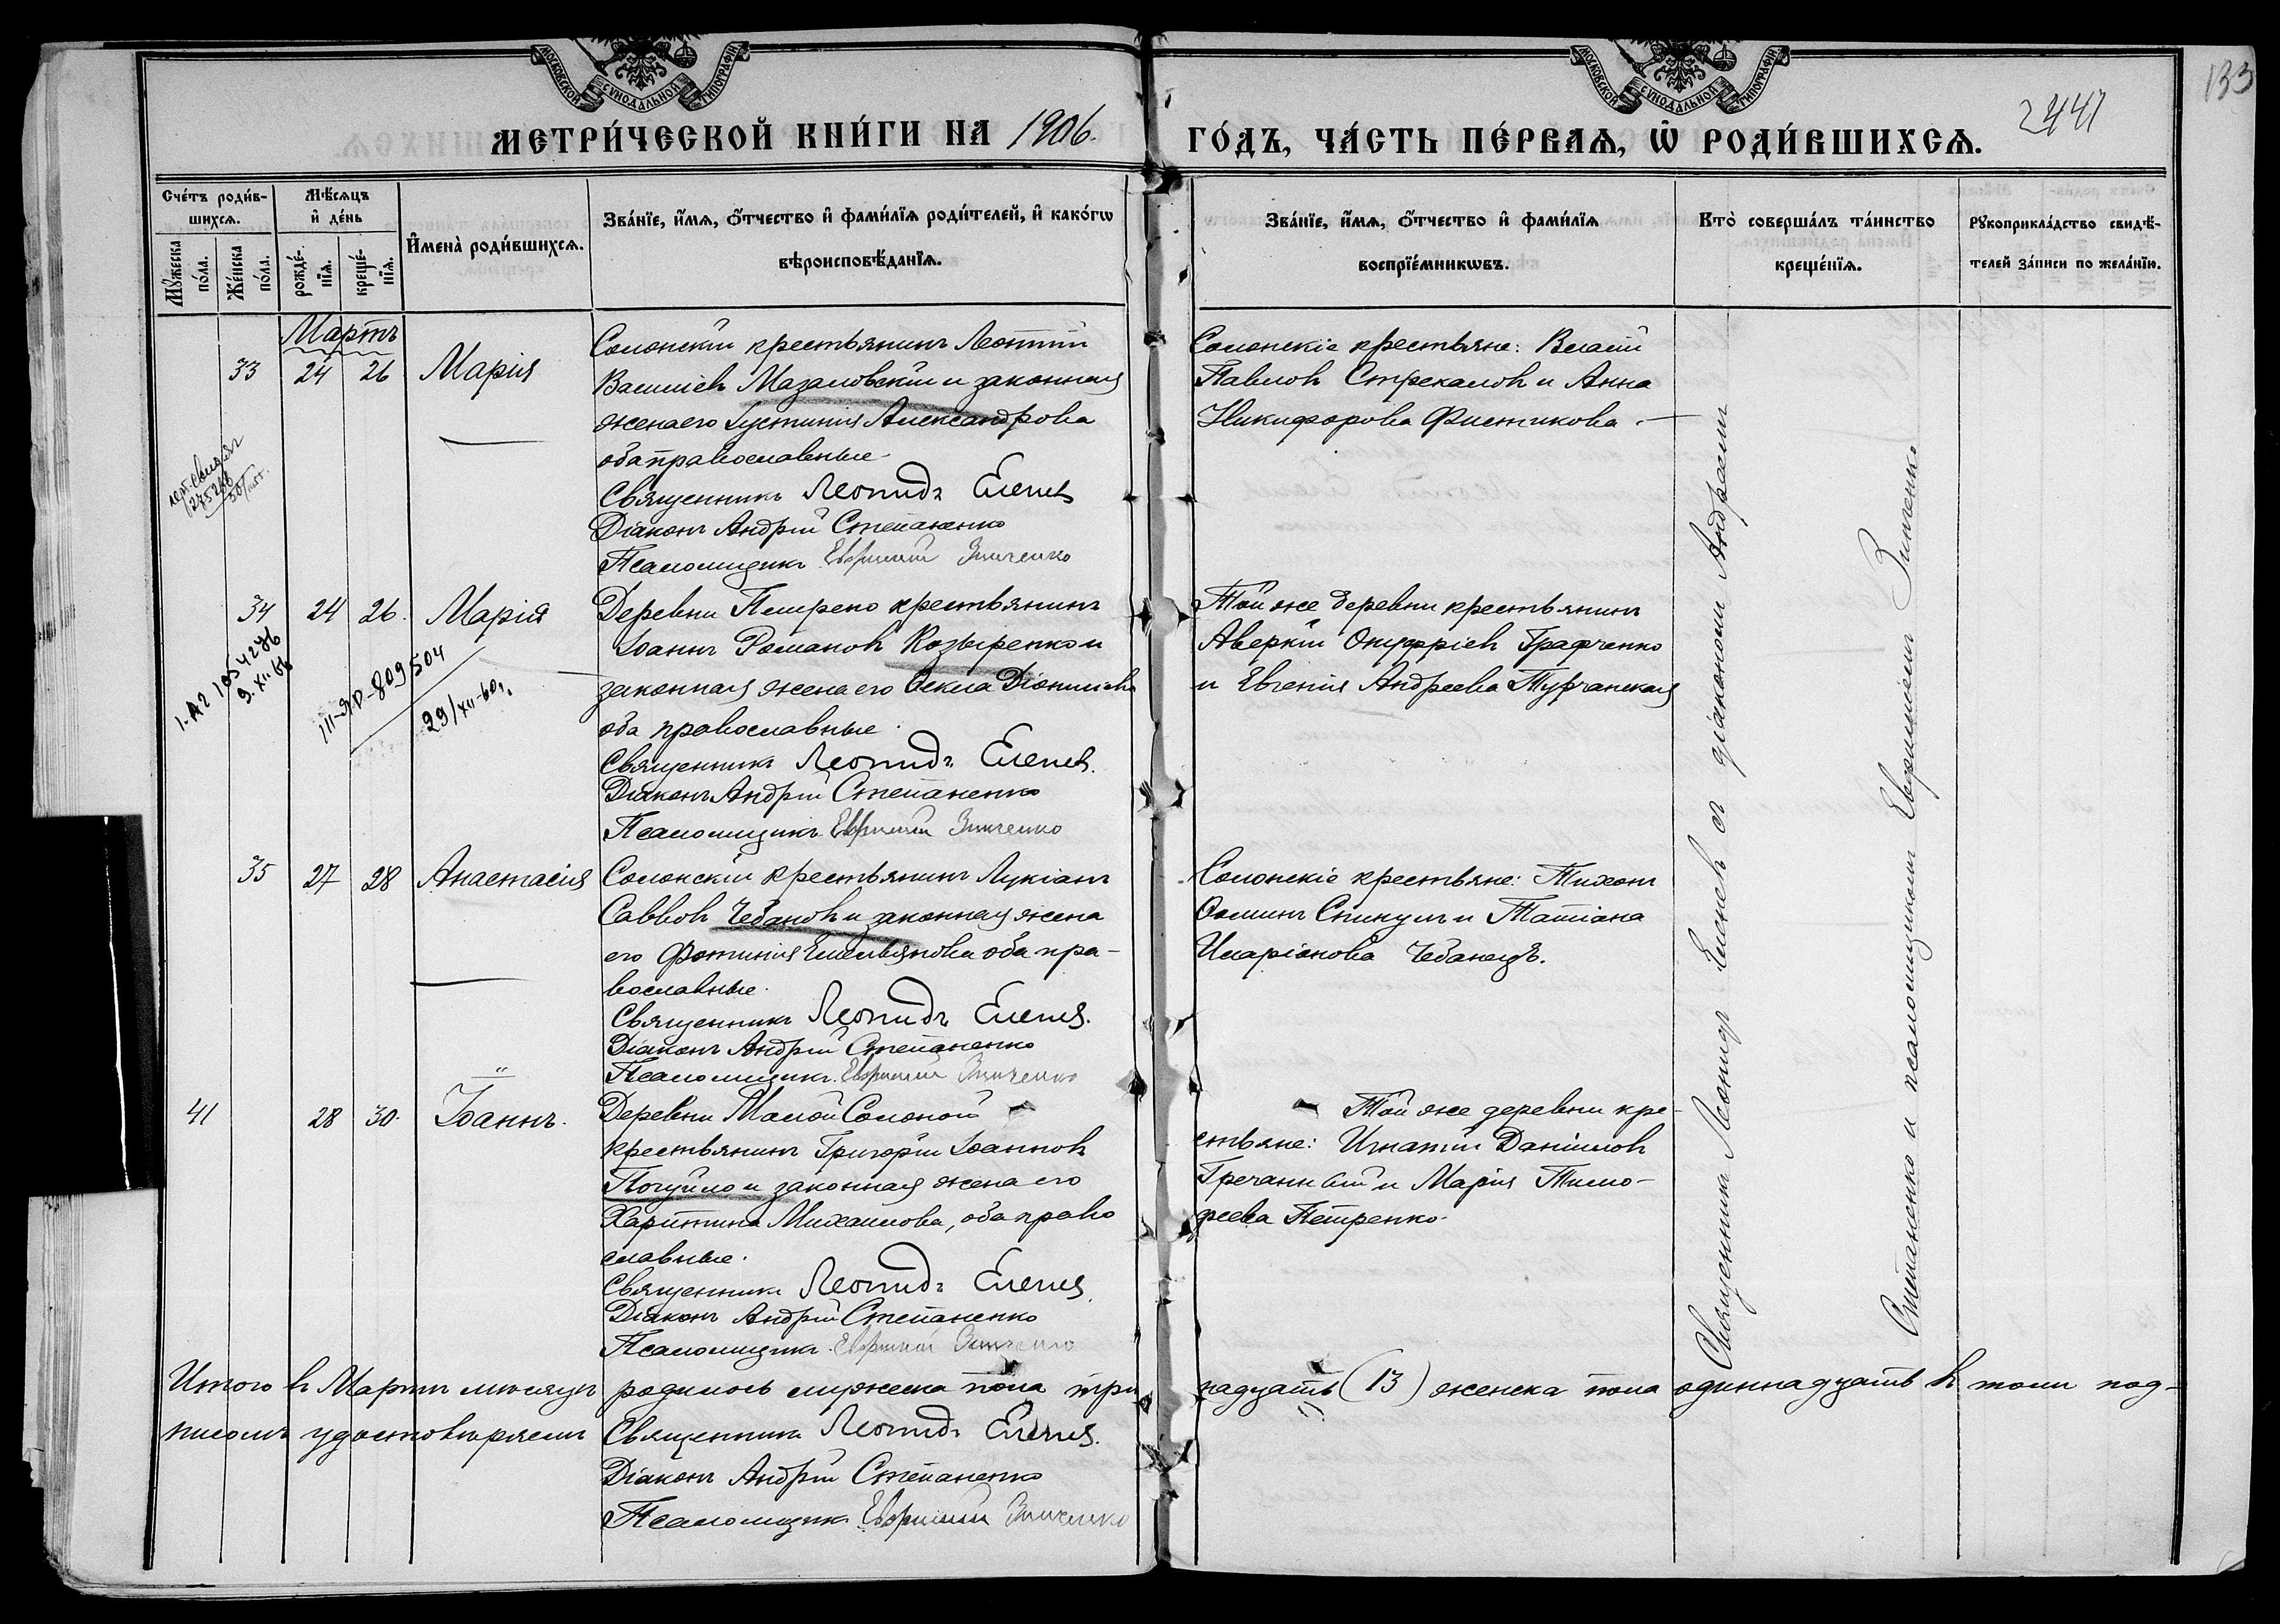 133
2441
МОСКОВСКОЙ СѴНОДАЛЬНОЙ ТИПОГРАФІИ
МОСКОВСКОЙ СѴНОДАЛЬНОЙ ТИПОГРАФІИ
МЕТРИ́ЧЕСКОЙ КНИ́ГИ НА 1906. ГО́ДЪ, ЧА́СТЬ ПЕ́РВАѦ, Ѡ҆ РОДИ́ВШИХСѦ.
Сче́тъ роди́в-
шихсѧ.
Мꙋ́жеска
по́ла.
Же́нска
по́ла.
Мѣ́сѧцъ
и҆ де́нь
рожде́-
нїѧ.
креще́-
нїѧ.
И҆мена̀ роди́вшихсѧ.
Зва́нїе, и҆́мѧ, ѻ҆́тчество и҆ фами́лїѧ роди́телей, и҆ како́гѡ
вѣроисповѣ́данїѧ.
Зва́нїе, и҆́мѧ, ѻ҆́тчество и҆ фами́лїѧ
воспрїе́мникѡвъ.
Кто̀ соверша́лъ та́инство
креще́нїѧ.
Рꙋкоприкла́дство свидѣ́-
телей за́писи по жела́нїю.
Мартъ
33 24 26 Марія
Солонскій крестьянинъ Леонтій
Василіевъ Мазаловскій и законная
жена его Іустинія Александрова
оба православные
Священникъ Леонидъ Еленев
Діаконъ Андрій Степаненко
Псаломщикъ Евфимій Зинченко
Солонскіе крестьяне: Власій
Павловъ Стрекаловъ и Анна
Никифорова Фистикова
34 24 26. Марія
1-А2 1054276
9.XII 66
III-ЯР-809504
29/XII-60г.
Деревни Петрено крестьянинъ
Іоаннъ Романовъ Козыренко и
законная жена его Ѳекла Діонисіева
оба православные
Священникъ Леонидъ Еленев.
Діаконъ Андрій Степаненко
Псаломщикъ Евфимій Зинченко
Той же деревни крестьянинъ
Аверкій Онуфріевъ Графченко
и Евгенія Андреева Турчанская
35 27 28 Анастасія
Солонскій крестьянинъ Лукіанъ
Саввовъ Чебановъ и законная жена
его Фотинія Емельянова оба пра-
вославные.
Священникъ Леонидъ Еленев.
Діаконъ Андрій Степаненко
Псаломщикъ Евфимій Зинченко
Солонскіе крестьяне: Тихонъ
Ѳоминъ Спинулъ и Татіана
Иларіонова Чебанецъ.
41 28 30. Іоаннъ.
Деревни Малой Солоной
крестьянинъ Григорій Іоанновъ
Погуйло и законная жена его
Харитина Михаилова, оба право
славные.
Священникъ Леонидъ Еленев.
Діаконъ Андрій Степаненко
Псаломщикъ Евфимій Зинченко
Той же деревни кре-
стьяне: Игнатій Даніиловъ
Гречанный и Марія Тимо-
феева Петренко.
Священникъ Леонидъ Еленевъ съ діакономъ Андреемъ
Степаненко и псаломщикомъ Евфиміемъ Зинченко
Итого въ Мартѣ мѣсяцѣ родилось мужеска пола три надцать (13) женска пола одиннадцать въ томъ под-
писомъ удостовѣряемъ Священникъ Леонидъ Еленев.
Діаконъ Андрій Степаненко
Псаломщикъ Евфимій Зинченко